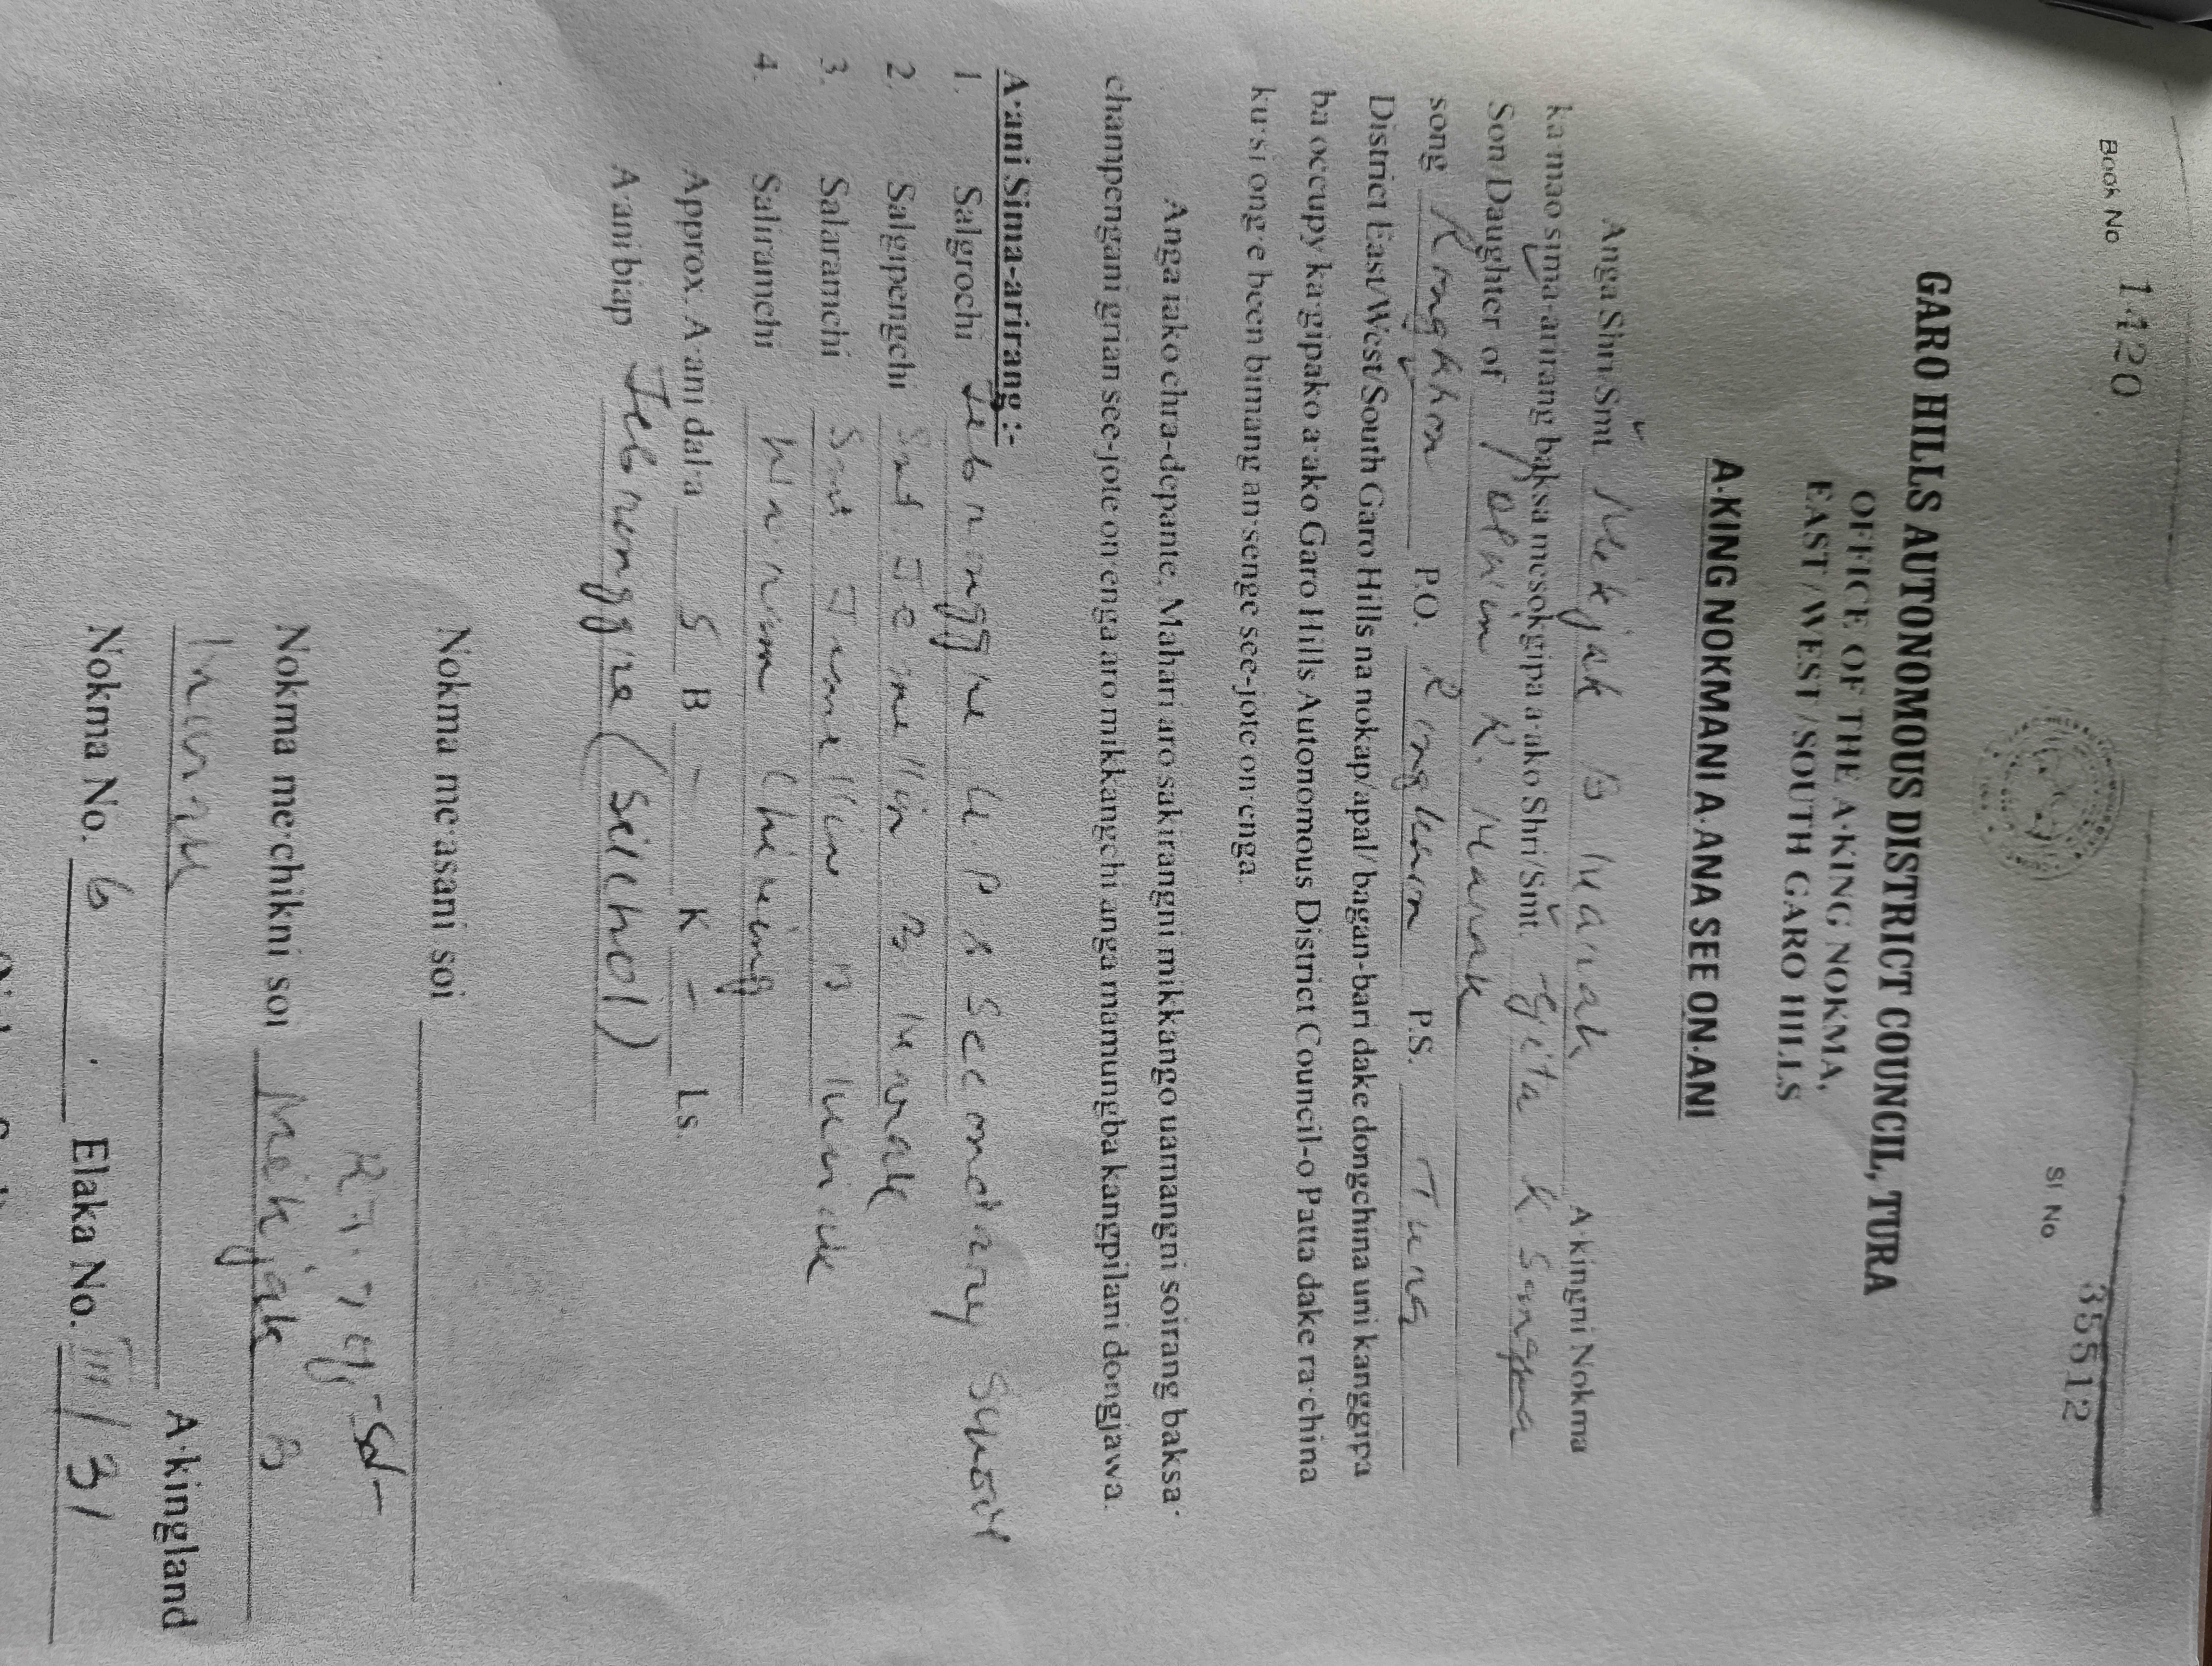 Book No 1420
Sl No 35512
GARO HILLS AUTONOMOUS DISTRICT COUNCIL, TURA
OFFICE OF THE A·KING NOKMA,
EAST / WEST / SOUTH GARO HILLS
A·KING NOKMANI A·ANA SEE ON·ANI
Anga Shri/Smt Mekjak B Marak A·kingni Nokma
ka·mao sima-arirang baksa mesokgipa a·ako Shri/Smt. Gita K Sangma
Son/Daughter of K. Marak
song P.O. P.S.
District East/West/South Garo Hills na nokap/apal/ bagan-bari dake dongchina uni kanggipa
ba occupy ka·gipako a·ako Garo Hills Autonomous District Council-o Patta dake ra·china
ku·si ong·e been bimang an·senge see-jote on·enga.
Anga iako chra-depante, Mahari aro sakirangni mikkango uamangni soirang baksa·
champengani grian see-jote on·enga aro mikkangchi anga mamungba kangpilani dongjawa.
A·ani Sima-arirang :-
1. Salgrochi Jebronggre U.P & Secondary School
2. Salgipengchi Smt. Jemellin B Marak
3. Salaramchi Smt Jemellin B Marak
4. Saliramchi Chiring
Approx. A·ani dal·a 5 B - K - Ls.
A·ani biap Jebronggre (Selchol)
Nokma me·asani soi
-Sd-
Nokma me·chikni soi Mekjak B
Marak A·kingland
Nokma No. 6 Elaka No. III / 31